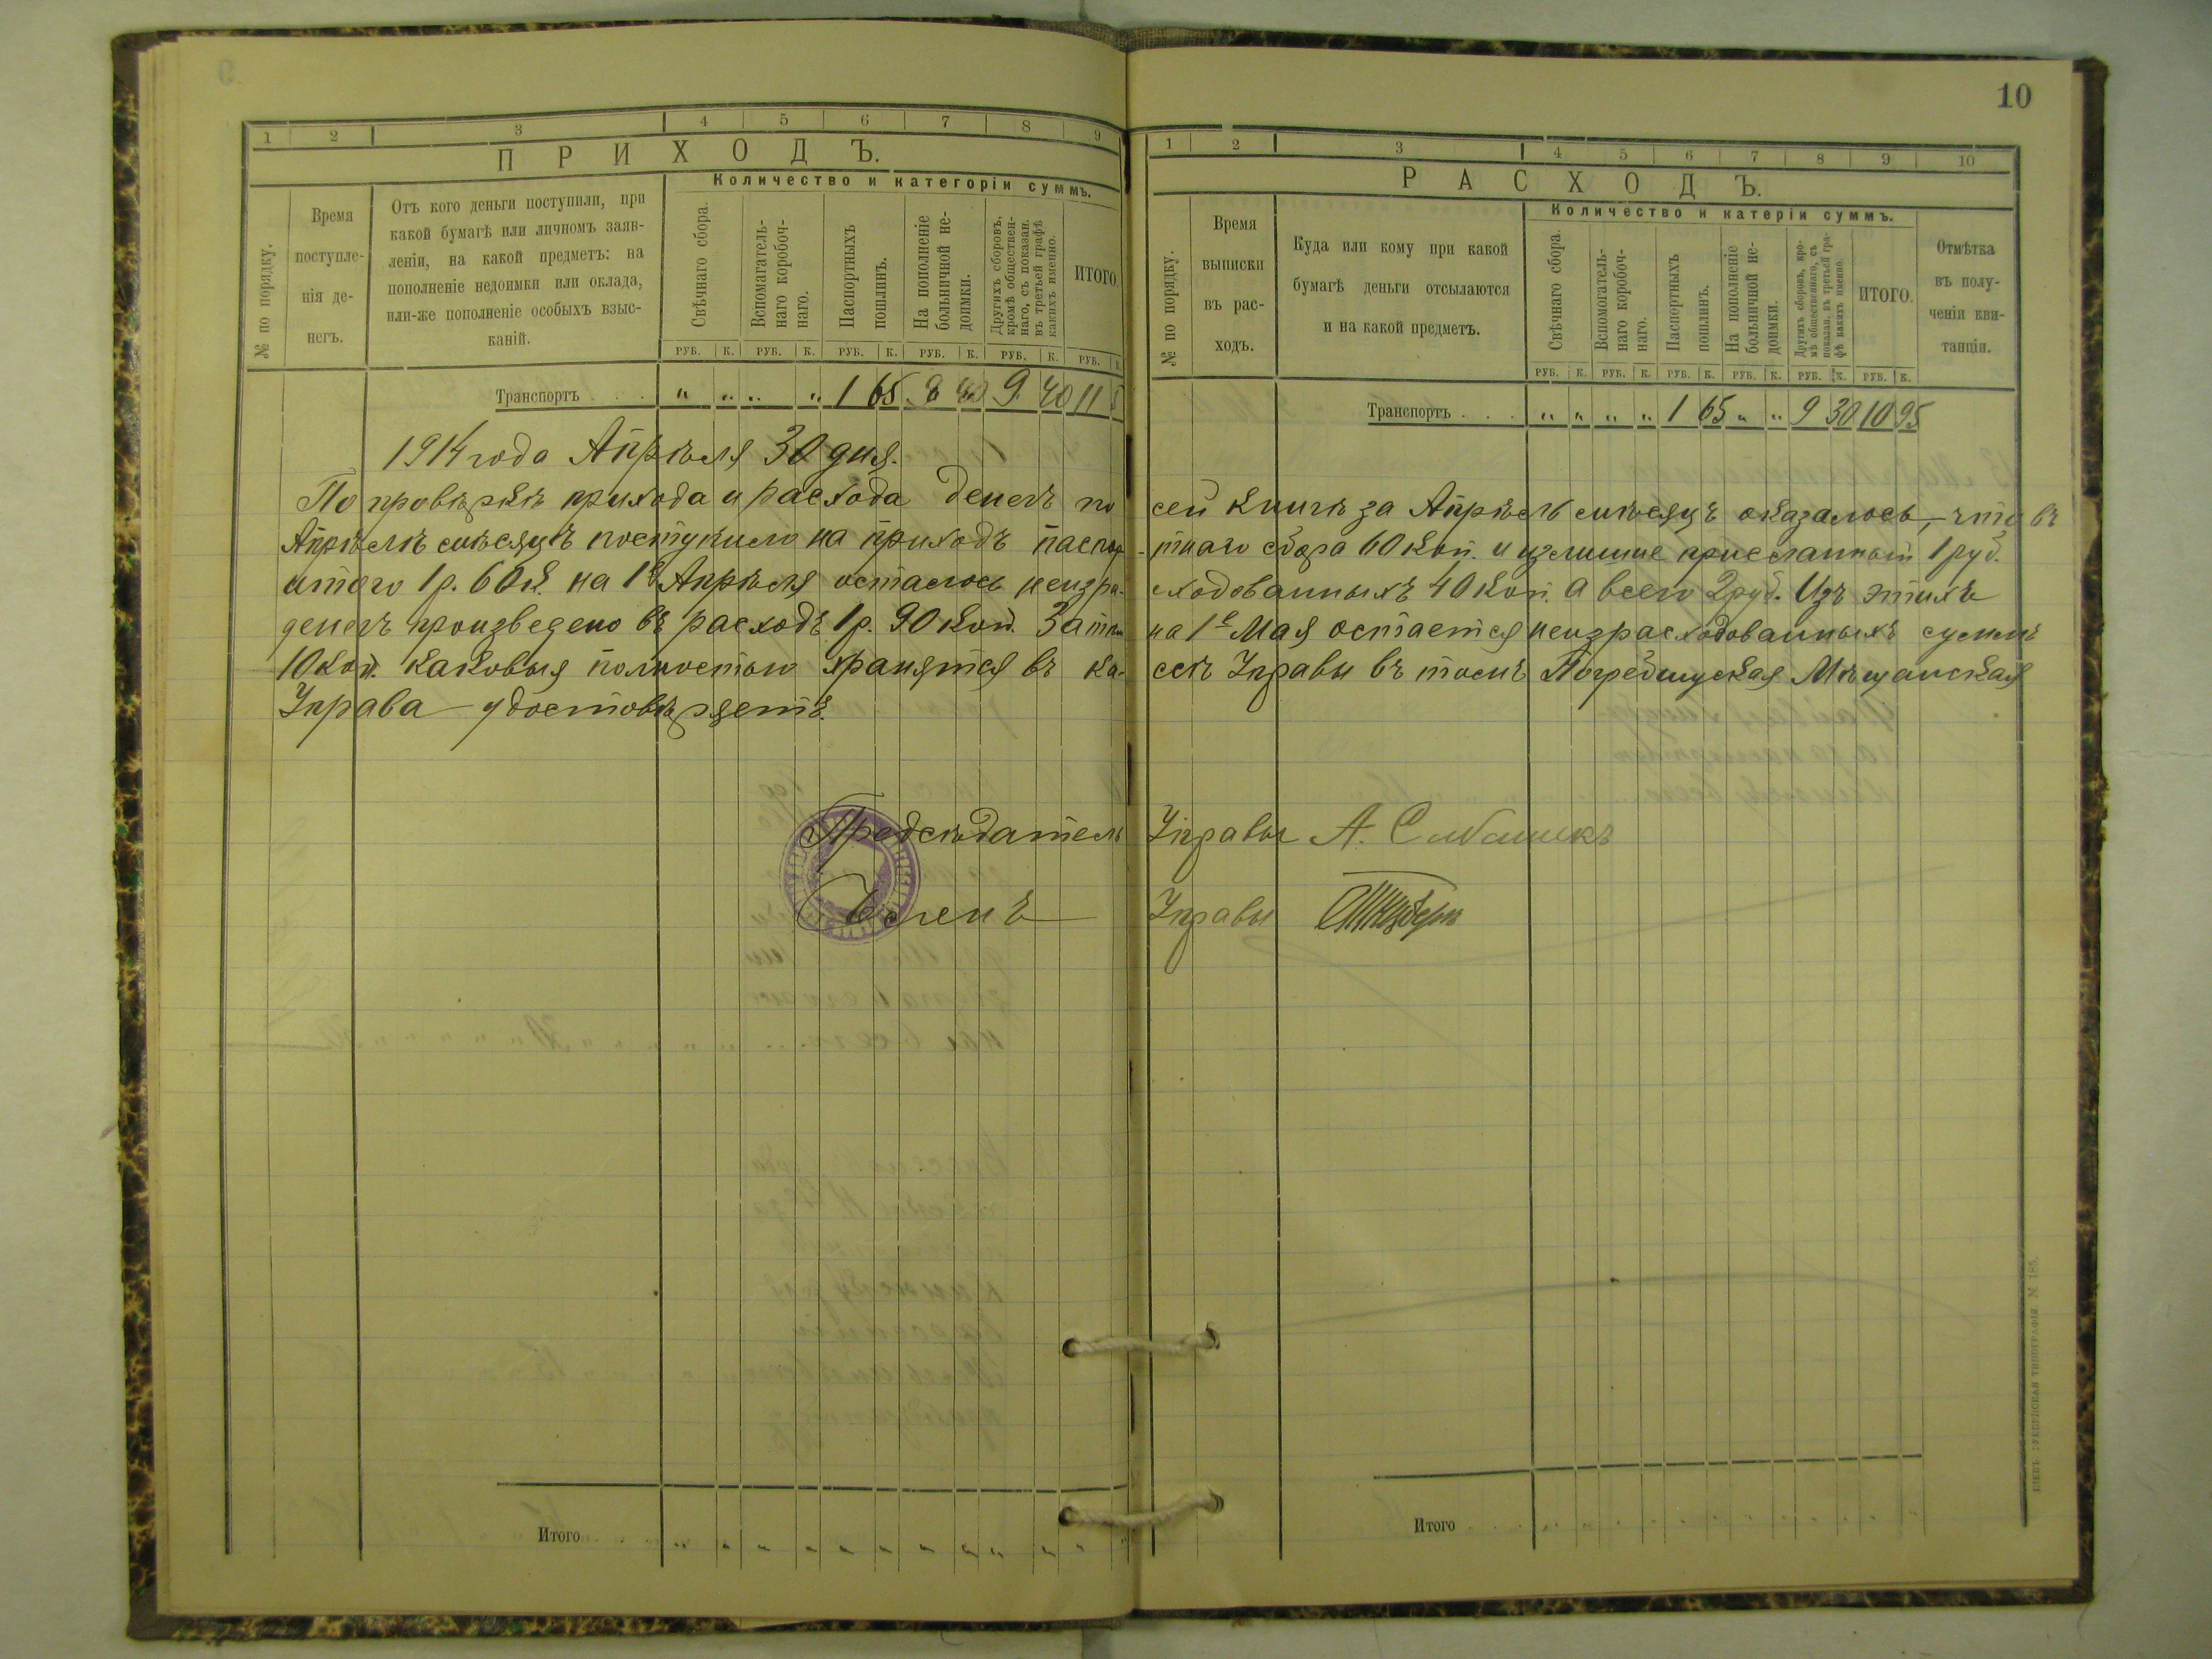 10
1 2 3 4 5 6 7 8 9
ПРИХОДЪ.
Количество и категоріи суммъ.
№ по порядку.
Время
поступле-
нія де-
негъ.
Отъ кого деньги поступили, при
какой бумагѣ или личномъ заяв-
леніи, на какой предметъ: на
пополненіе недоимки или оклада,
или-же пополненіе особыхъ взыс-
каній.
Свѣчнаго сбора.
Вспомагатель-
наго коробоч-
наго.
Паспортныхъ
пошлинъ.
На пополненіе
больничной не-
доимки.
Другихъ сборовъ,
кромѣ обществен-
наго, съ показан.
въ третьей графѣ
какихъ именно.
ИТОГО.
РУБ. К. РУБ. К. РУБ. К. РУБ. К. РУБ. К. РУБ. К.
Транспортъ . . . " " " " 1 65 9 40 11
1 2 3 4 5 6 7 8 9 10
РАСХОДЪ.
Количество и катеріи суммъ.
№ по порядку.
Время
выписки
въ рас-
ходъ.
Куда или кому при какой
бумагѣ деньги отсылаются
и на какой предметъ.
Свѣчнаго сбора.
Вспомогатель-
наго коробоч-
наго.
Паспортныхъ
пошлинъ.
На пополненіе
больничной не-
доимки.
Другихъ сборовъ, кро-
мѣ общественнаго, съ
показан. въ третьей гра-
фѣ какихъ именно.
ИТОГО.
Отмѣтка
въ полу-
ченіи кви-
танціи.
РУБ. К. РУБ. К. РУБ. К. РУБ. К. РУБ. К. РУБ. К.
Транспортъ . . . " " " " 1 65 " " 9 30 10 95
1914 года Апрѣля 30 дня.
По провѣркѣ прихода и расхода денегъ по сей книгѣ за Апрѣль мѣсяцъ оказалось, что въ
Апрѣлѣ мѣсяцѣ поступило на приходъ паспор-тнаго сбора 60 коп. и излишне присланныхъ 1 руб.
итого 1 р. 60 к. на 1е Апрѣля осталось неизра-сходованныхъ 40 коп. а всего 2 руб. Изъ этихъ
денегъ произведено въ расходъ 1 р. 90 коп. Затѣм на 1е Мая остается неизрасходованныхъ суммъ
10 коп. каковыя полностью хранятся въ ка-ссѣ Управы въ томъ Погребищская Мѣщанская
Управа удостовѣряетъ.
Предсѣдатель Управы А.
Членъ Управы
Итого . . . " " " " " " " " " " "
Итого . . . " " " " " " " " " " " "
КІЕВЪ. ГУБЕРНСКАЯ ТИПОГРАФІЯ. № 185.